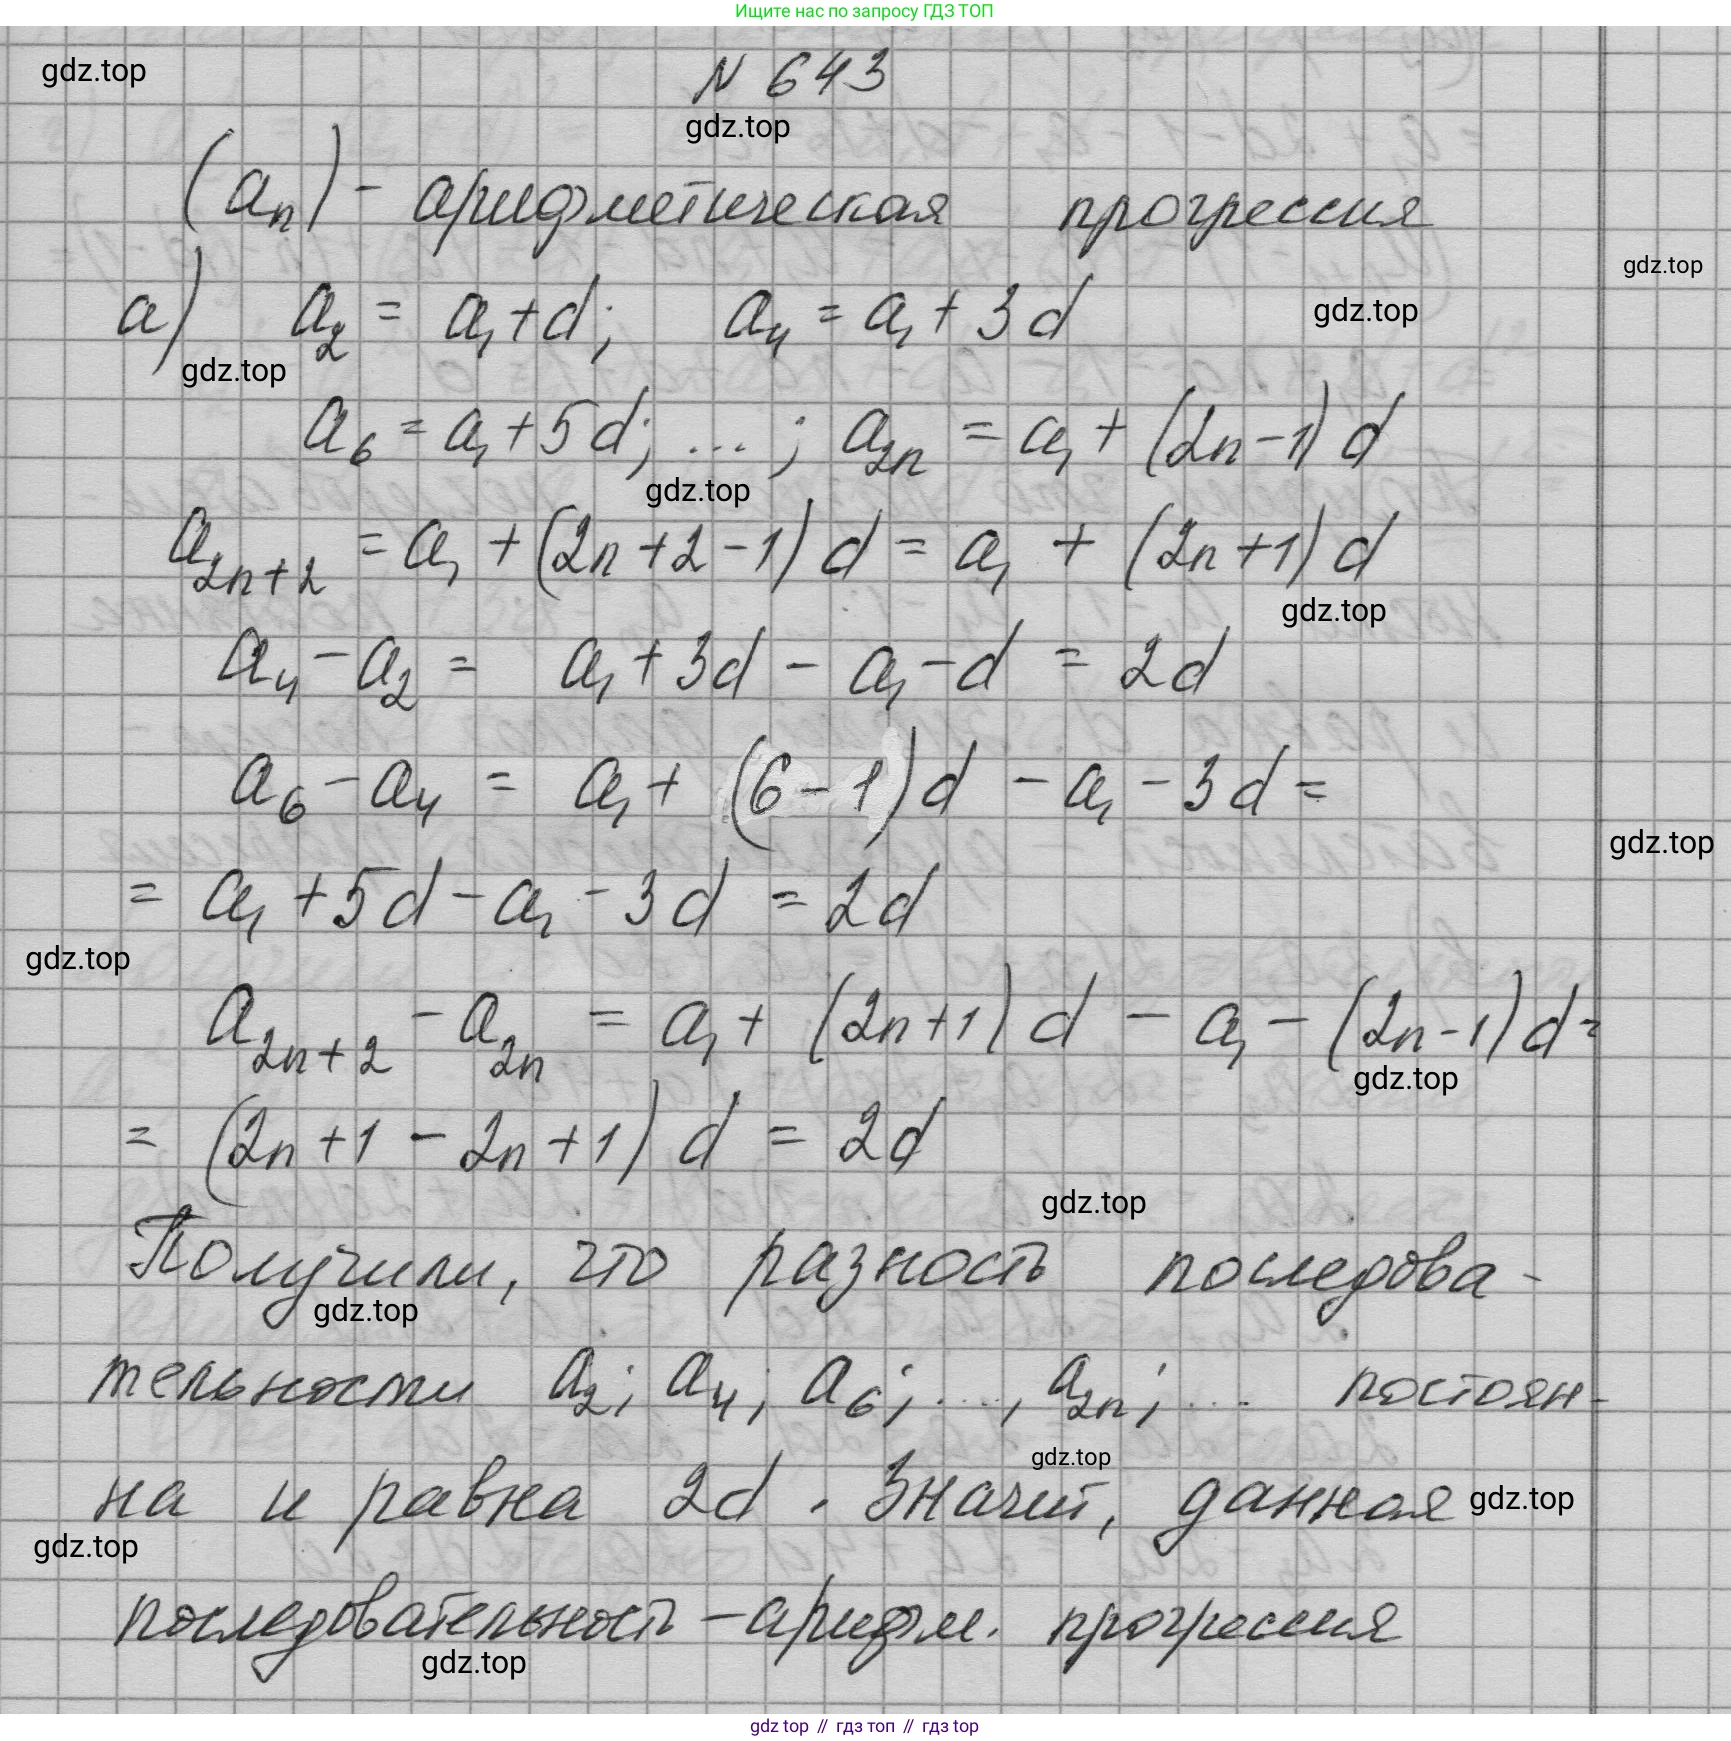 Ищите нас по запросу ГДЗ ТОП
N 643
gdz.top
gdz.top
(aₙ) - арифметическая прогрессия
gdz.top
а) a₂ = a₁ + d; a₄ = a₁ + 3d
gdz.top
gdz.top
a₆ = a₁ + 5d; ...; a₂ₙ = a₁ + (2n-1)d
gdz.top
a₂ₙ₊₂ = a₁ + (2n+2-1)d = a₁ + (2n+1)d
gdz.top
a₄ - a₂ = a₁ + 3d - a₁ - d = 2d
a₆ - a₄ = a₁ + (6-1)d - a₁ - 3d =
gdz.top
= a₁ + 5d - a₁ - 3d = 2d
gdz.top
a₂ₙ₊₂ - a₂ₙ = a₁ + (2n+1)d - a₁ - (2n-1)d =
gdz.top
= (2n+1-2n+1)d = 2d
gdz.top
Получили, что разность последова-
gdz.top
тельности a₂; a₄; a₆; ..., a₂ₙ; ... постоян-
gdz.top
на и равна 2d. Значит, данная
gdz.top
gdz.top
последовательность - арифм. прогрессия
gdz.top
gdz top // гдз топ // гдз top